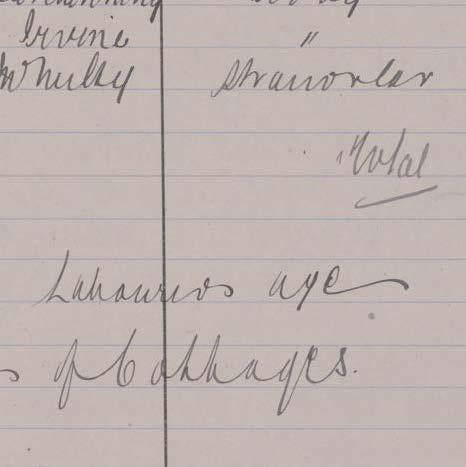 Irvine "
Stranorlar
Total
Labourers age
s of Cottages.